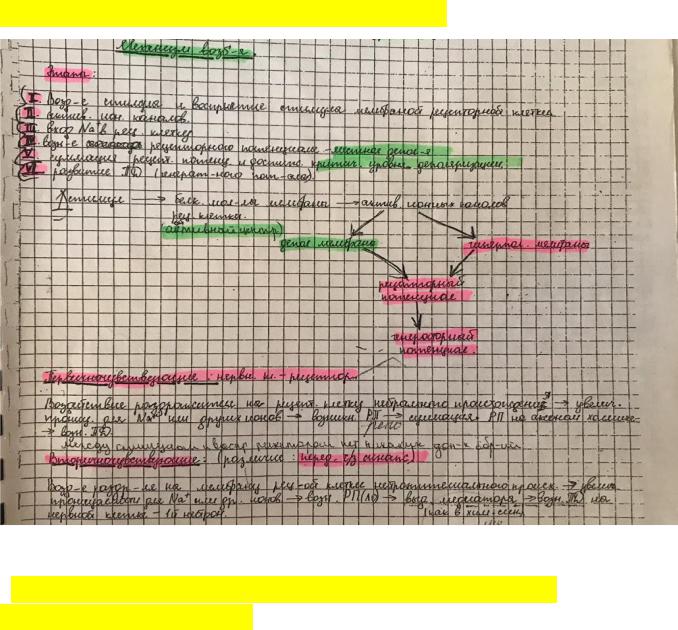 Механизм возб-я.
Этапы:
I. Возд-е стимула и восприятие стимула мембраной рецепторной клетки
II. актив. ион. каналов.
III. вход Na⁺ в рец. клетку
IV. возн-е рецепторного потенциала - местная депол-я
V. суммация рецепт. потенц. и достиж. критич. уровня деполяризации.
VI. развитие ПД (генерат-ного пот-ала).
белк. мол-лы мембраны → актив. ионных каналов
рец. клетки.
(активный центр)
депол. мембраны гиперпол. мембраны
рецепторный
потенциал
генераторный
потенциал.
Первичночувствующие: нервн. кл. - рецептор.
Воздействие раздражителя на рецепт. клетку нейронального происхождения → увелич.
прониц. для Na⁺ или других ионов → возникн. РП → суммация РП на аксонном холмике
→ возн. ПД.
Между стимулом и рецептором нет никаких доп-х обр-ий
Вторичночувствующие: (различие: перед. ч/з синапс)
Возд-е раздр-ля на мембрану рец-ой клетки → увелич.
проницаемости для Na⁺ или др. ионов → возн. РП (ЛО) → выд. медиатора → возн. ПД на
нервной клетке - 1й нейрон. (как в хим. син.)